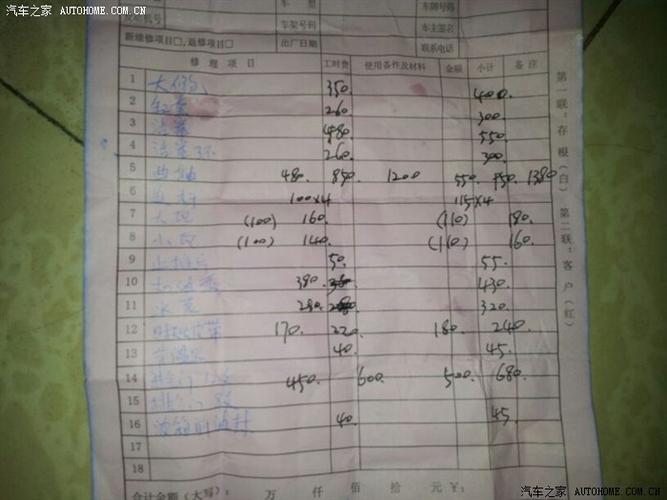 汽车之家 AUTOHOME.COM.CN
车型 车牌号码
发动机号 车架号码 车主签名
新维修项目□,返修项目□ 出厂日期 联系电话
修理项目 工时费 使用备件及材料 金额 小计 备注
1 350. 400.
2 260. 300.
3 活塞 480. 550.
4 活塞环 260. 300.
5 曲轴 480. 850. 1200 550. 950. 1380
6 100×4 115×4
7 大瓦 (100) 160. (110) 180.
8 小瓦 (100) 140. (110) 160.
9 止推片 50. 55.
10 380. 430.
11 水泵 280. 320.
12 170. 220. 180. 240.
13 节温器 40. 45.
14 进气门 12 450. 600. 500. 680.
15 排气门
16 40. 45.
17
18
合计金额(大写): 万 仟 佰 拾 元 ¥:
第一联:存根(白) 第二联:客户(红)
汽车之家 AUTOHOME.COM.CN